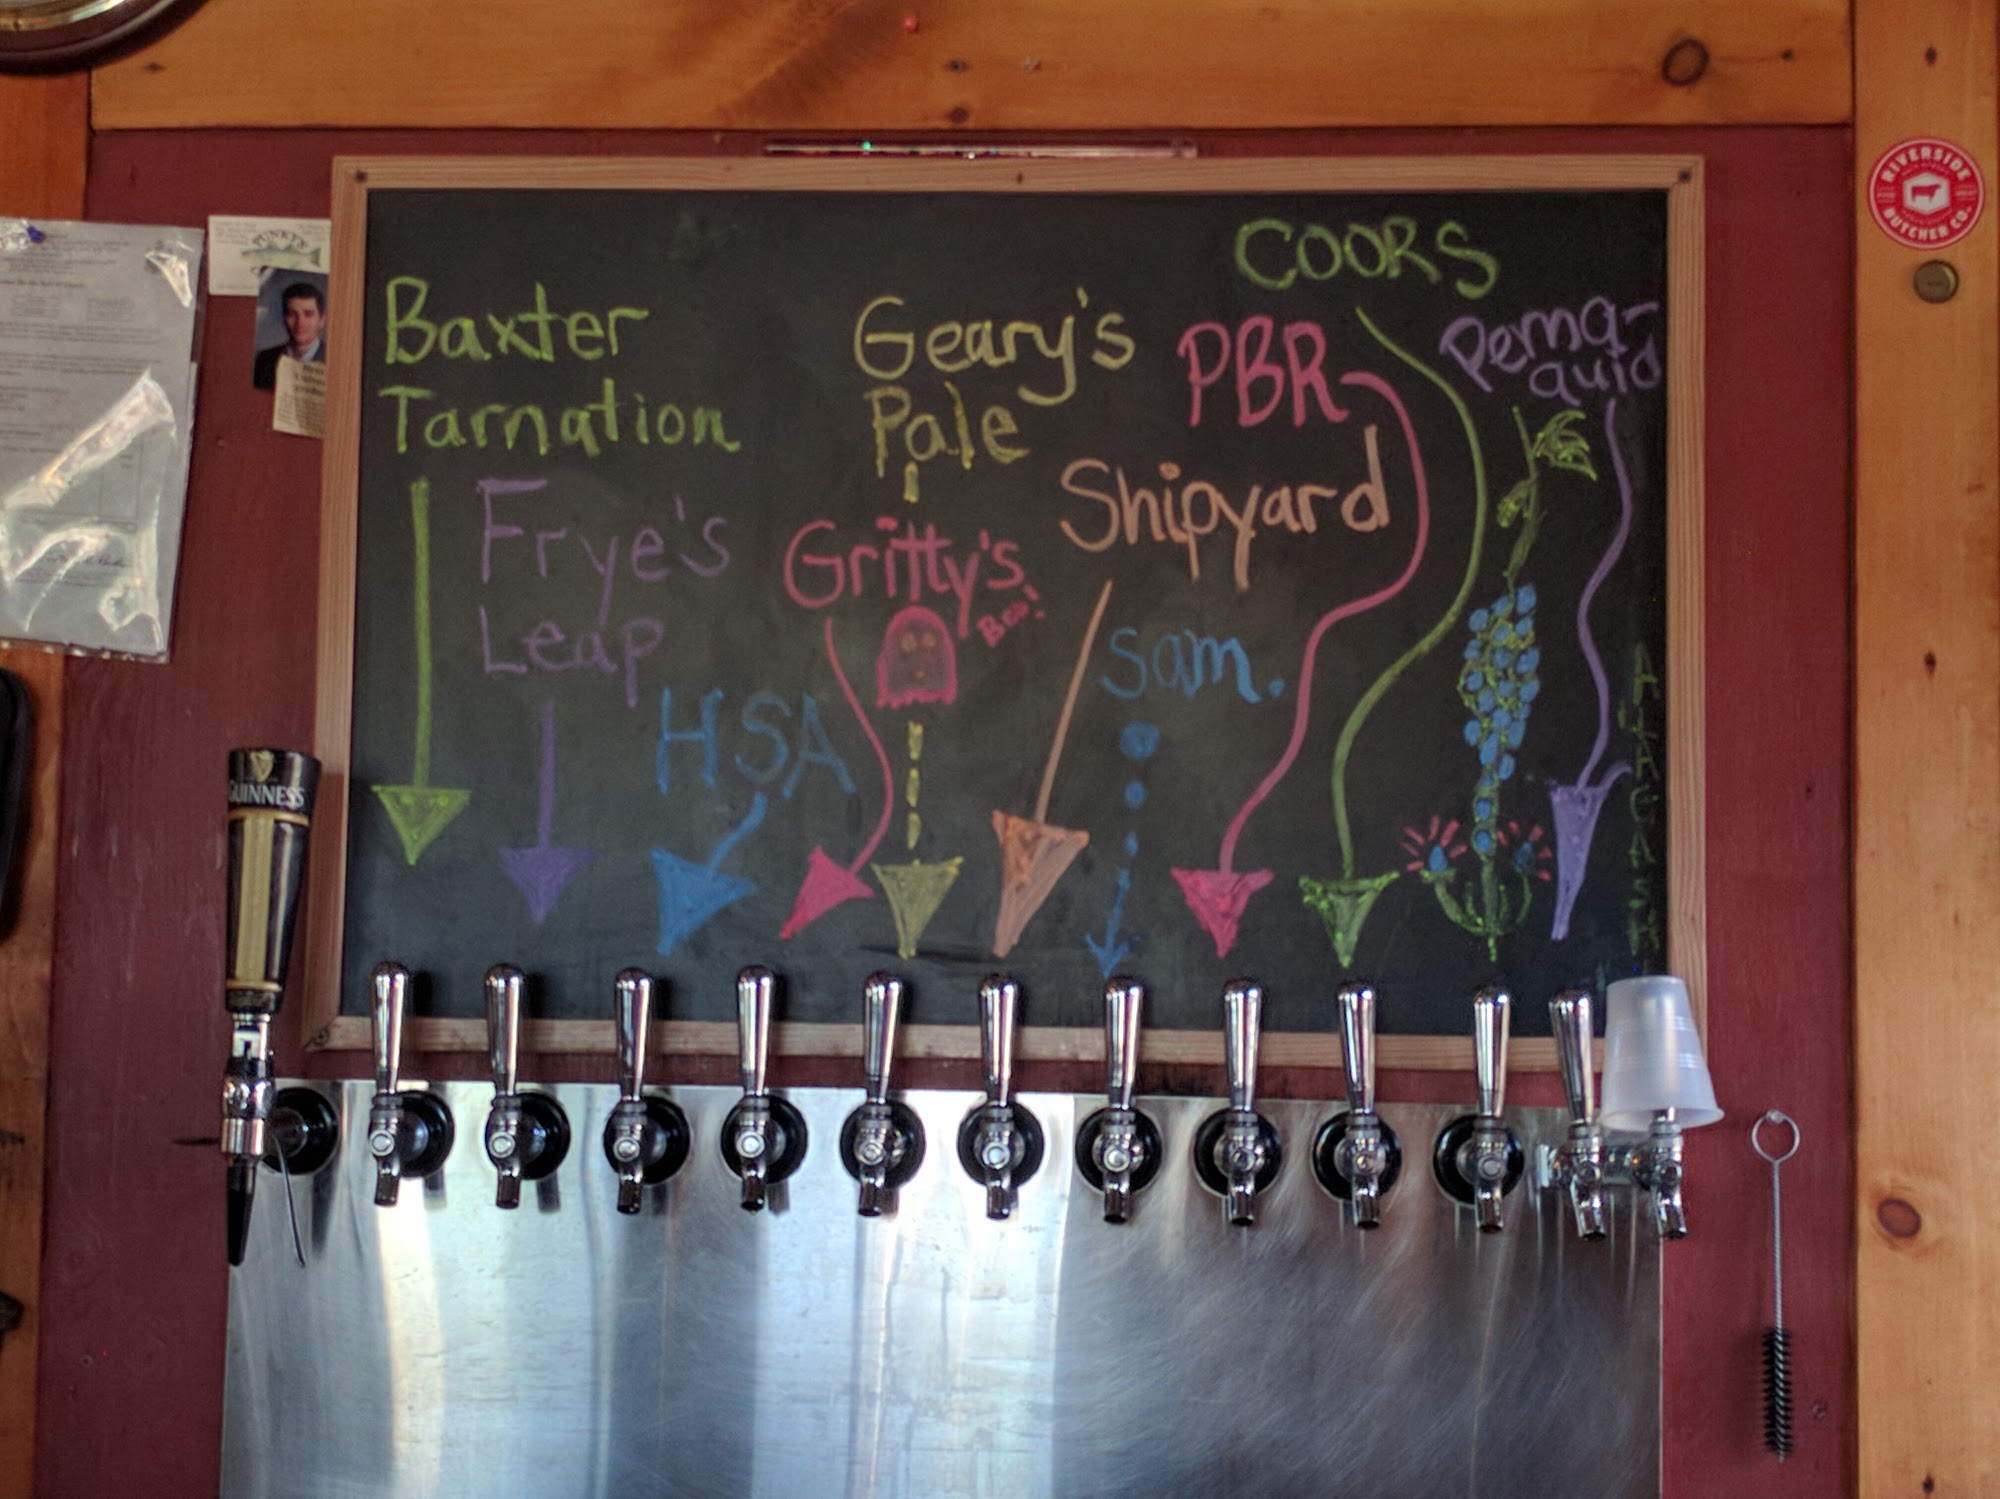 COORS
Baxter
Tarnation
Geary's
Pale
PBR
Pema-
quid
Frye's
Leap
Shipyard
Gritty's
Boo!
Sam.
HSA
ALLAGASH
GUINNESS
PUNKY'S
RIVERSIDE
BUTCHER CO.